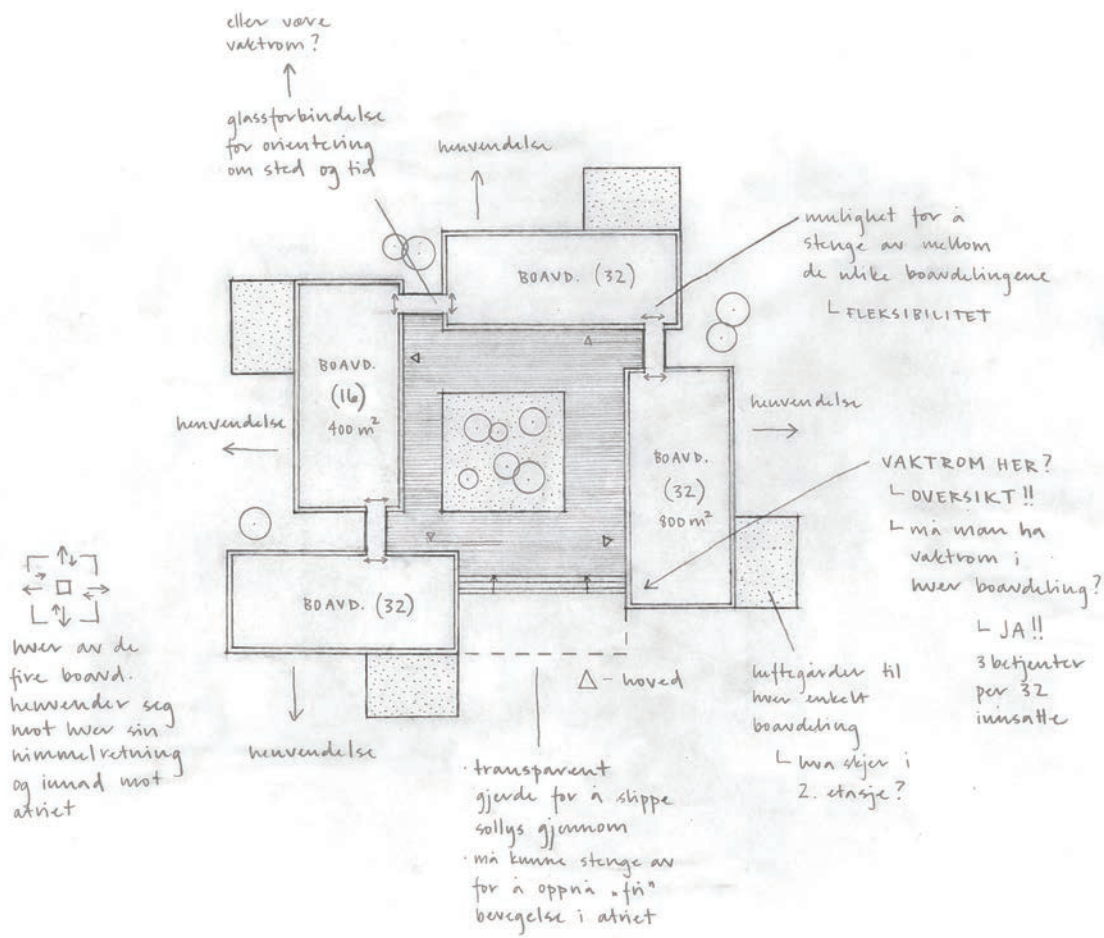 eller være
vaktrom?
glassforbindelse
for orientering
om sted og tid
henvendelse
mulighet for å
stenge av mellom
de ulike boavdelingene
FLEKSIBILITET
BOAVD. (32)
BOAVD.
(16)
400 m²
henvendelse
henvendelse
BOAVD.
(32)
800 m²
VAKTROM HER?
OVERSIKT!!
må man ha
vaktrom i
hver boavdeling?
JA!!
3 betjenter
per 32
innsatte
BOAVD. (32)
hver av de
fire boavd.
henvender seg
mot hver sin
himmelretning
og innad mot
atriet
henvendelse
△ - hoved
luftegårder til
hver enkelt
boavdeling
hva skjer i
2. etasje?
· transparent
gjerde for å slippe
sollys gjennom
· må kunne stenge av
for å oppnå "fri"
bevegelse i atriet